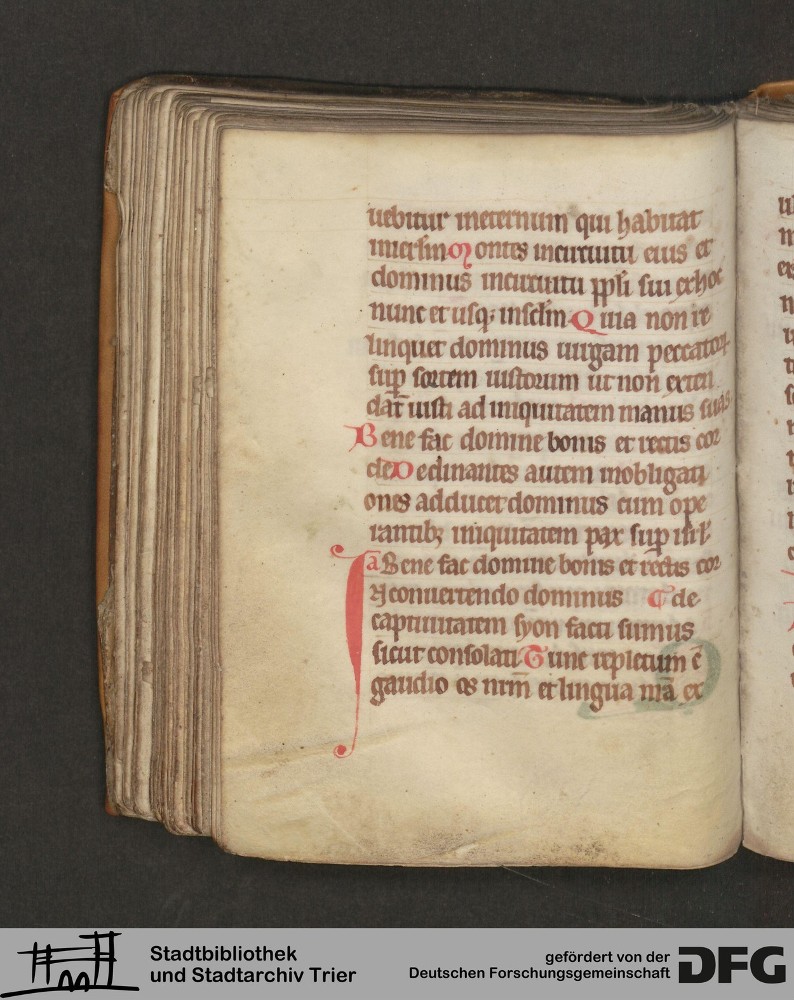 uebitur ineternum qui habitat
iniersl̄m Montes incircuitu eius et
dominus incircuitu ppl̄i sui exhoc
nunc et usq; inscl̄m Quia non re
linquet dominus uirgam peccatoꝝ
sup̄ sortem iustorum ut non exten
dāt iusti ad iniquitatem manus suas
Bene fac domine bonis et rectis cor
de Declinantes autem inobligati
ones adducet dominus cum ope
rantibꝫ iniquitatem pax sup̄ isrl̄
a Bene fac domine bonis et rectis cor
In conuertendo dominus de
captiuitatem syon facti sumus
sicut consolati Tunc repletum ē
gaudio os nrm̄ et lingua nr̄a ex
Stadtbibliothek
und Stadtarchiv Trier
gefördert von der
Deutschen Forschungsgemeinschaft
DFG